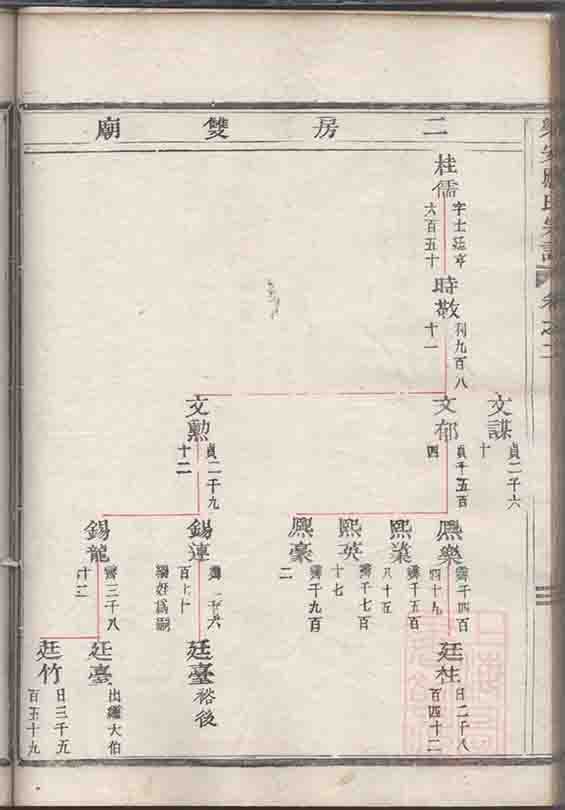 二房雙廟
桂儒
字士廷亨
六百五十
時敬
利九百八
十一
文謀
貞二千六
十
文郁
貞千五百
四
文勲
貞二千九
十二
熈樂
霽千四百
四十九
熈業
霽千五百
八十五
熙英
霽千七百
十七
熈豪
霽千九百
二
錫連
繼好爲嗣
錫龍
霽三千八
十二
廷柱
日二千八
百四十二
廷臺
裕後
廷臺
出繼大伯
廷竹
日三千五
百五十九